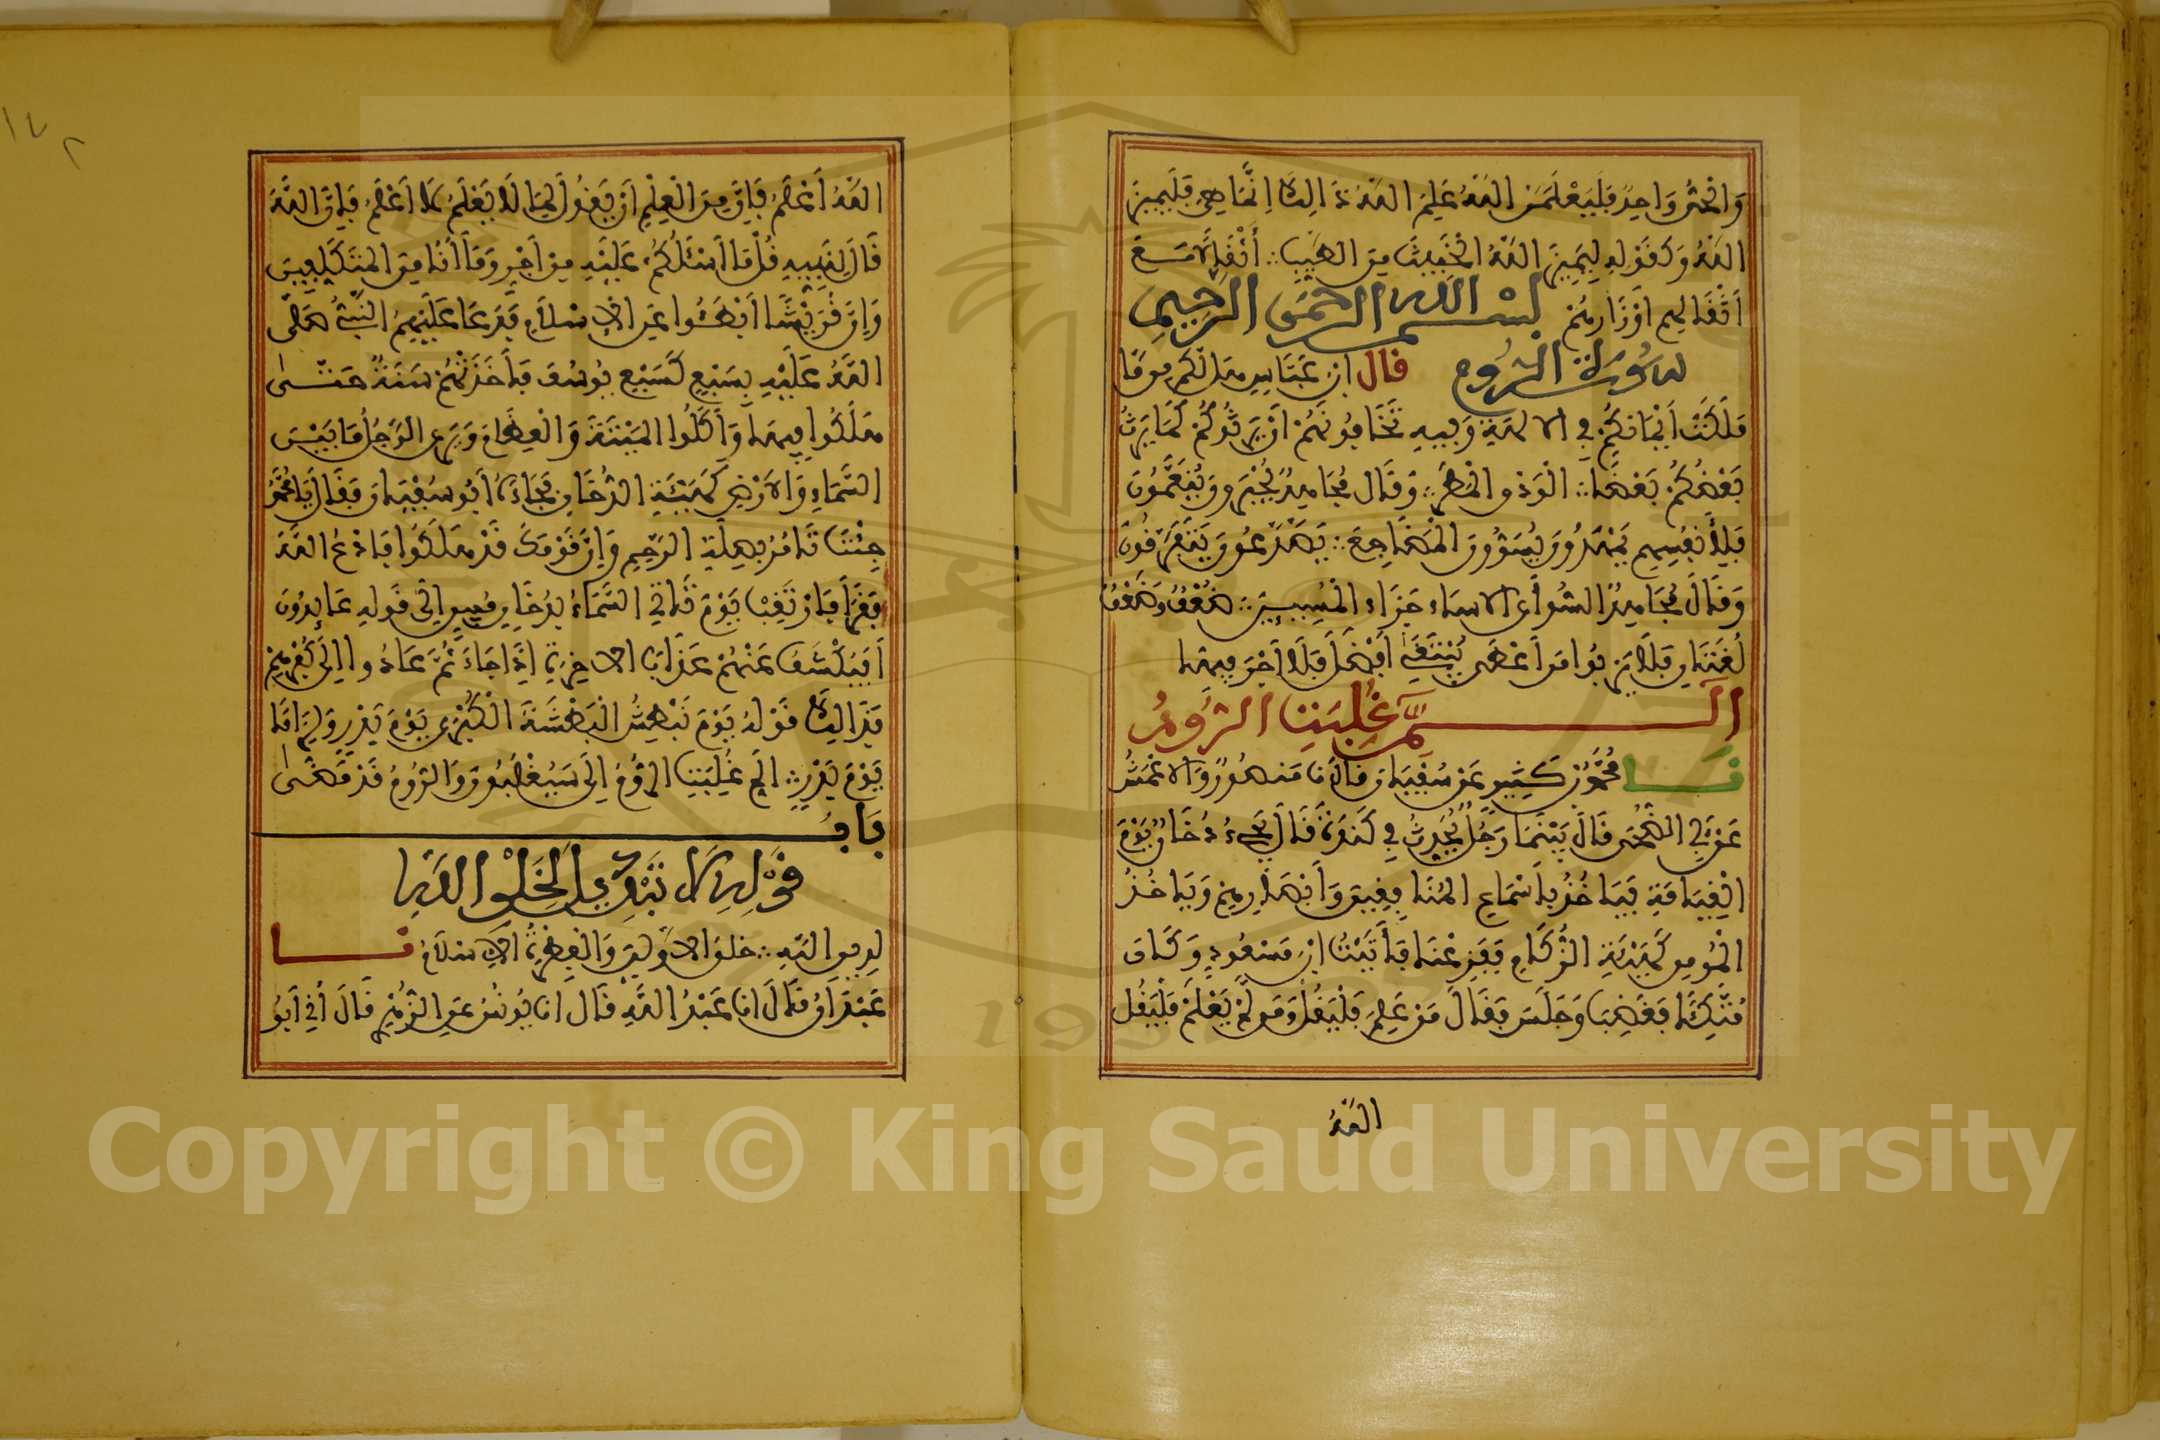 وَالْحَيُّ وَاحِدٌ فَلَيَعْلَمَنَّ اللَّهُ عَلِمَ اللَّهُ ذَالِكَ اِنَّمَا هِيَ فَلِيَمِيزَ
اللَّهُ وَكَقَوْلِهِ لِيَمِيزَ اللَّهُ الْخَبِيثَ مِنَ الطَّيِّبِ أَثْقَالًا مَعَ
أَثْقَالِهِم أَوْزَارِهِمْ بِسْمِ اللهِ الرَّحْمٰنِ الرَّحِيمِ
سُورَةُ الرُّومِ قال ابْنُ عَبَّاسٍ هَل لَكُم مِمَّا
مَلَكَتْ أَيْمَانُكُمْ فِي الالهةِ وَفِيهِ تَخَافُونَهُمْ أَنْ يَرِثُوكُمْ كَمَا يَرِثُ
بَعْضُكُمْ بَعْضًا الْوَدْقُ الْمَطَرُ وَقَالَ مُجَاهِدٌ يُحْبَرُونَ يُنَعَّمُونَ
فَلِأَنْفُسِهِم يَمْهَدُونَ يُسَوُّونَ الْمَضَاجِعَ يَصَّدَّعُونَ يَتَفَرَّقُونَ
وَقَالَ مُجَاهِدٌ السُّوأَى الاساءة جَزَاء الْمُسِيئِينَ ضُعْفٌ وَضَعْفٌ
لُغَتَانِ فَلَا يَرْبُوا مَنْ أَعْطَى يَبْتَغِي أَفْضَلَ فَلَا أَجْرَ فِيهَا
الٓـمٓ غُلِبَتِ الرُّومُ
نَـا مُحَمَّدُ بْنُ كَثِيرٍ عَنْ سُفْيَانَ قَالَ نَا مَنصُورٌ وَالاعْمَشُ
عَنْ أَبِي الضُّحَى قَالَ بَيْنَمَا رَجُلٌ يُحَدِّثُ فِي كِنْدَةَ قَالَ يَجِيءُ دُخَانٌ يَوْمَ
الْقِيَامَةِ فَيَاخُذُ بِأَسْمَاعِ الْمُنَافِقِينَ وَأَبْصَارِهِمْ وَيَاخُذُ
الْمُومِنَ كَهَيْئَةِ الزُّكَامِ فَفَزِعْنَا فَأَتَيْتُ ابْنَ مَسْعُودٍ وَكَانَ
مُتَّكِئًا فَغَضِبَ وَجَلَسَ فَقَالَ مَنْ عَلِمَ فَلْيَقُل وَمَن لَّمْ يَعْلَمْ فَلْيَقُل
اللَّهُ
١٧٢
اللَّهُ أَعْلَمُ فَإِنَّ مِنَ الْعِلْمِ أَنْ يَقُولَ لِمَا لَا يَعْلَمُ لَا أَعْلَمُ فَإِنَّ اللَّهَ
قَالَ لِنَبِيِّهِ قُلْ مَا أَسْئَلُكُمْ عَلَيْهِ مِنْ أَجْرٍ وَمَا أَنَا مِنَ الْمُتَكَلِّفِينَ
وَإِنَّ قُرَيْشًا أَبْطَئُوا عَنِ الْإِسْلَامِ فَدَعَا عَلَيْهِمُ النَّبِيُّ صَلَّى
اللَّهُ عَلَيْهِ بِسَبْعٍ كَسَبْعِ يُوسُفَ فَأَخَذَتْهُمْ سَنَةٌ حَتَّى
هَلَكُوا فِيهَا وَأَكَلُوا الْمَيْتَةَ وَالْعِظَامَ وَيَرَى الرَّجُلُ مَا بَيْنَ
السَّمَاءِ وَالْأَرْضِ كَهَيْئَةِ الدُّخَانِ فَجَاءَهُ أَبُو سُفْيَانَ فَقَالَ يَا مُحَمَّدُ
جِئْتَ تَامُرُ بِصِلَةِ الرَّحِمِ وَإِنَّ قَوْمَكَ قَدْ هَلَكُوا فَادْعُ اللَّهَ
فَقَرَأَ فَارْتَقِبْ يَوْمَ تَاتِي السَّمَاءُ بِدُخَانٍ مُبِينٍ إِلَى قَولِهِ عَائِدُونَ
أَفَيُكْشَفُ عَنْهُمْ عَذَابُ الاخِرَةِ إِذَا جَاءَ ثُمَّ عَادُوا إِلَى كُفْرِهِمْ
فَذَالِكَ قَوْلُهُ يَوْمَ نَبْطِشُ الْبَطْشَةَ الْكُبْرَى يَوْمَ بَدْرٍ وَلِزَامًا
يَوْمَ بَدْرٍ الٓمٓ غُلِبَتِ الرُّومُ إِلَى سَيَغْلِبُونَ وَالرُّومُ قَدْ مَضَى
بَابُ
قَوْلِهِ لَا تَبْدِيلَ لِخَلْقِ اللَّهِ
لِدِينِ اللَّهِ خَلْقُ الاوَّلِينَ وَالْفِطْرَةُ الْإِسْلَامُ نَـا
عَبْدَانُ قَالَ انَا عَبْدُ اللَّهِ قَالَ انَا يُونُسُ عَنِ الزُّهْرِيِّ قَالَ أَنِي أَبُو
Copyright © King Saud University